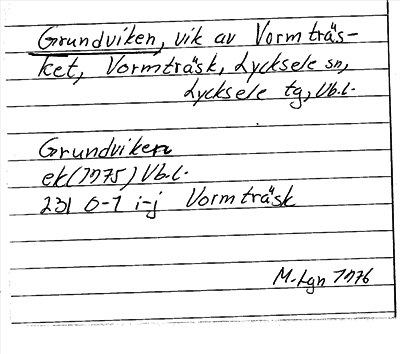 Grundviken, vik av Vormträs-
ket, Vormträsk, Lycksele sn,
Lycksele tg, Vb.l.
Grundviken
ek (1975) Vb.l.
231 0-1 i-j Vormträsk
M-Lgn 1976